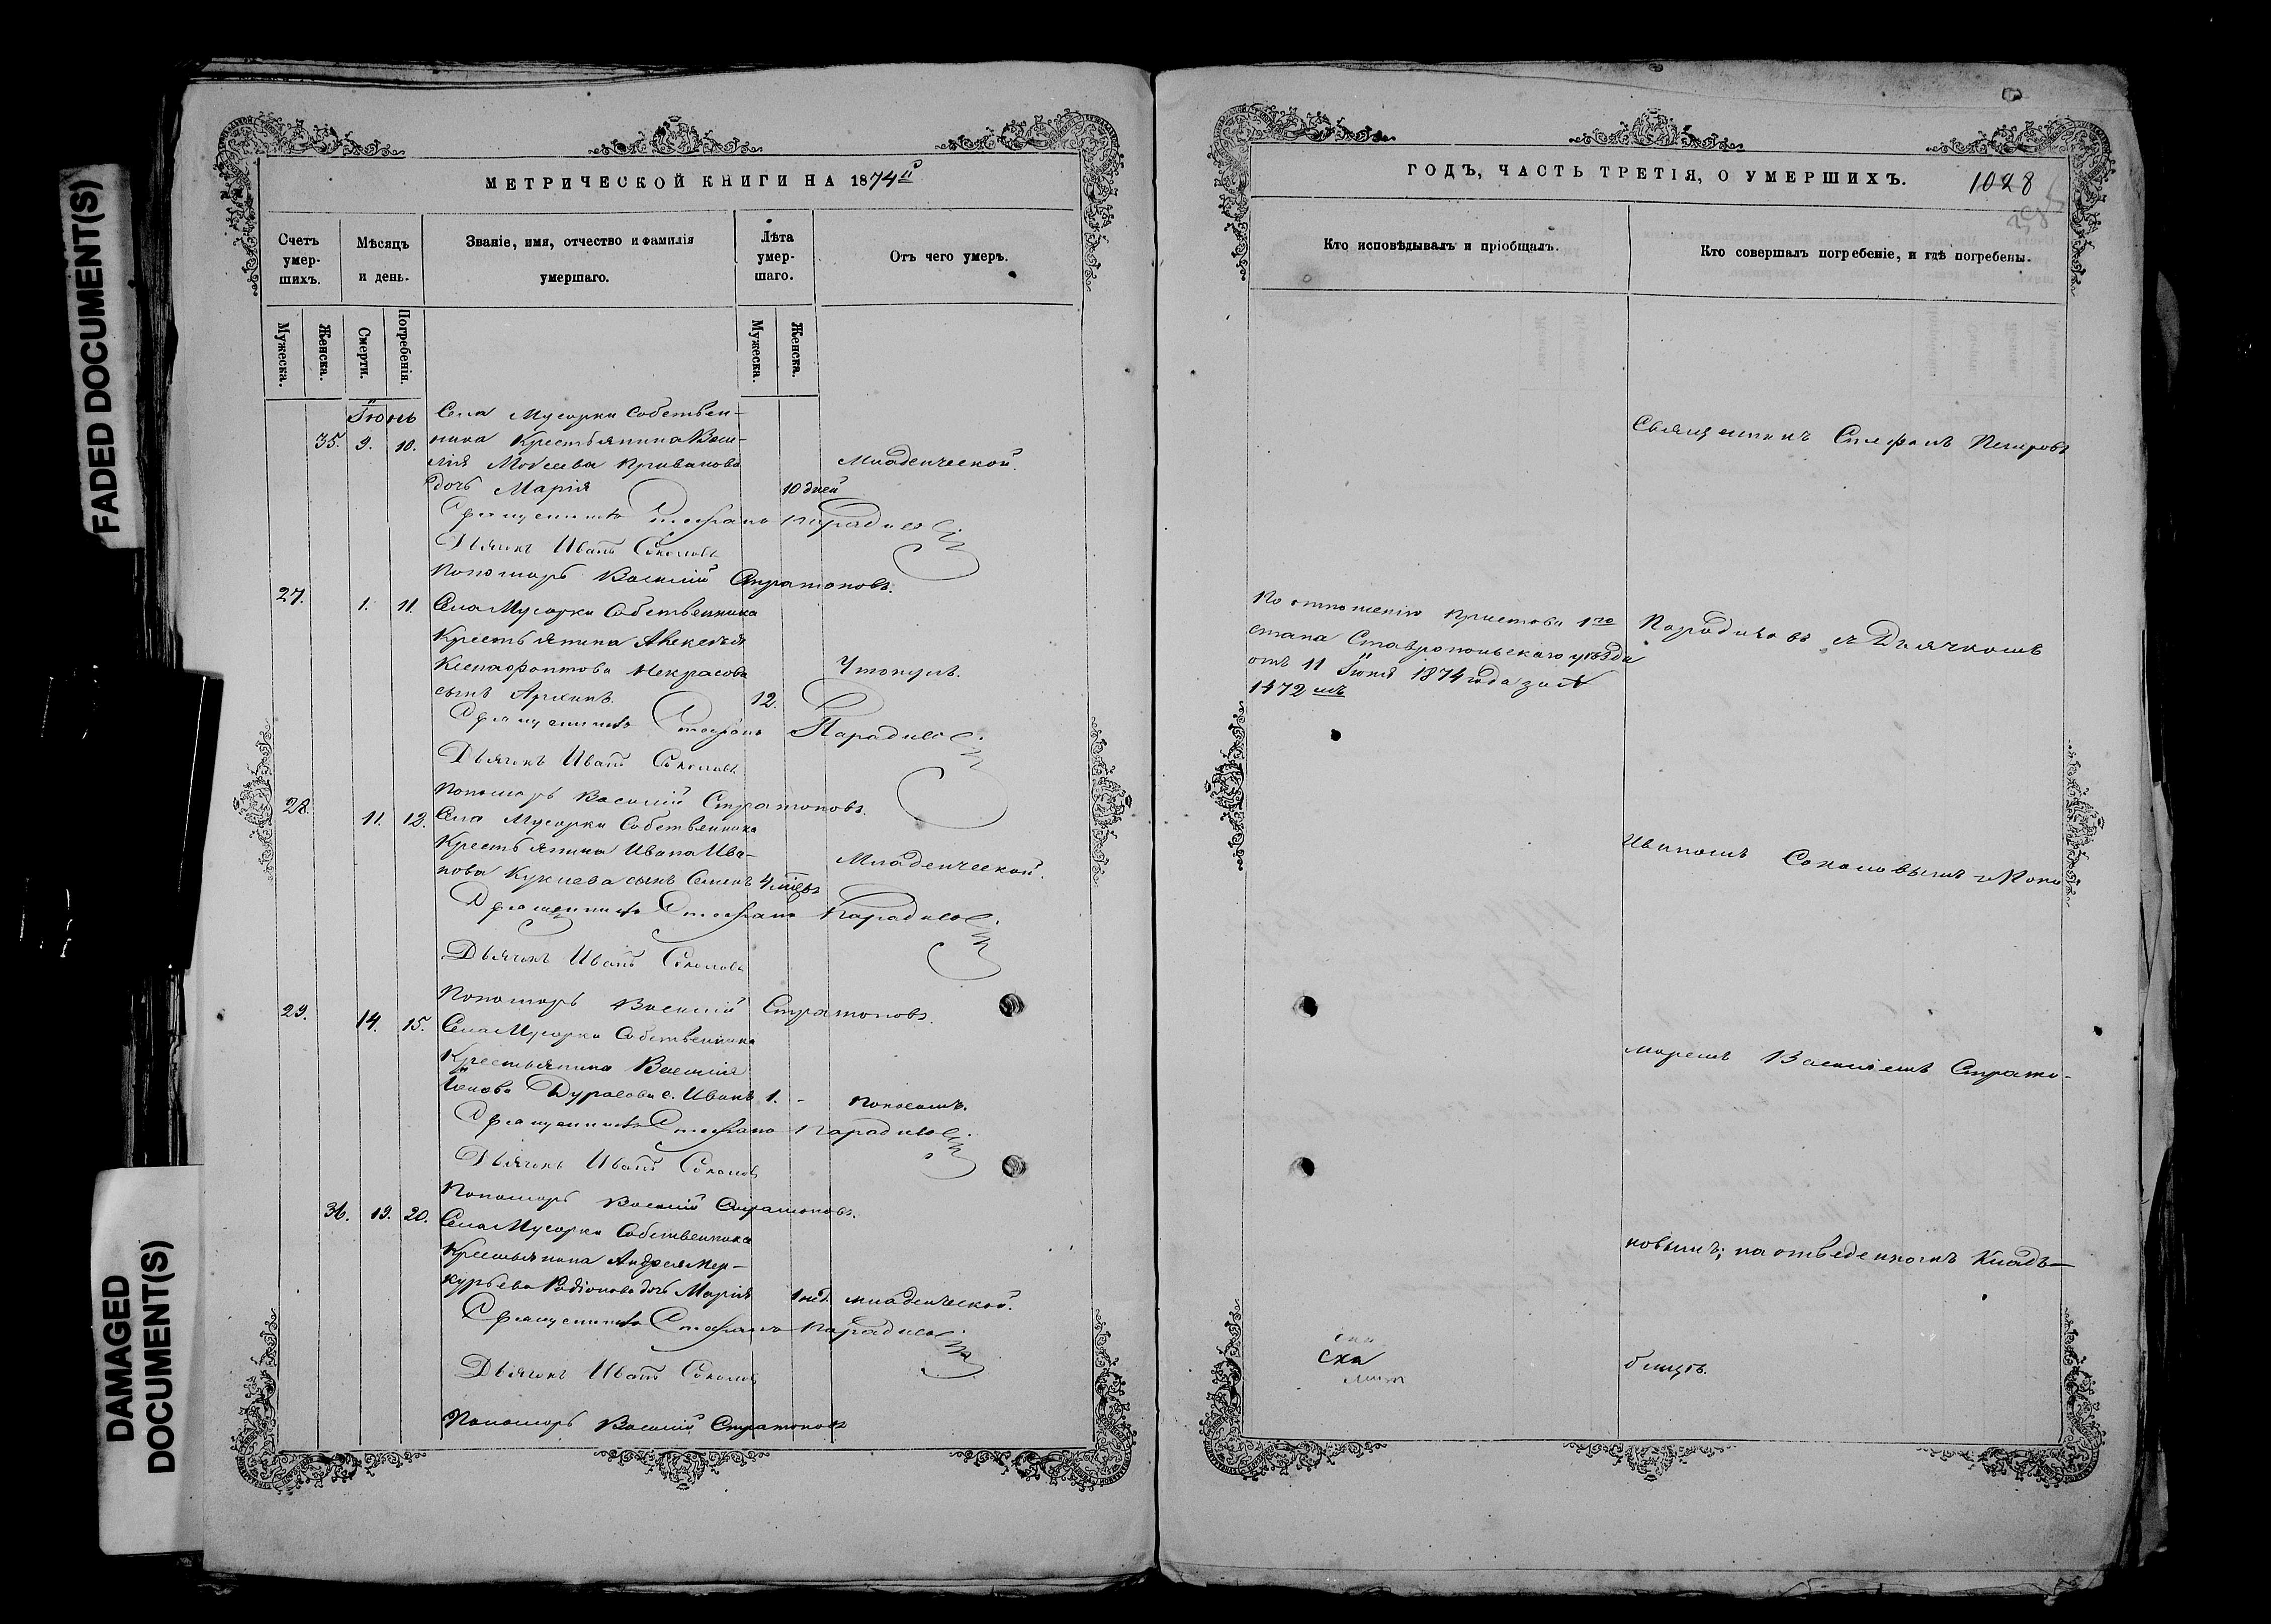 FADED DOCUMENT(S)
DAMAGED
DOCUMENT(S)
МЕТРИЧЕСКОЙ КНИГИ НА 1874й
Счетъ
умер-
шихъ.
Мѣсяцъ
и день.
Званіе, имя, отчество и фамилія
умершаго.
Лѣта
умер-
шаго.
Отъ чего умеръ.
Мужеска.
Женска.
Смерти.
Погребенія.
Мужеска.
Женска.
Іюнь
35. 9. 10.
Села Мусорки Собствен-
ника Крестьянина Васи-
лія Моѵсеева
дочь Марія 10 дней
Младенческой.
Священникъ Стефанъ Парадизов
Дьячекъ Иванъ Соколовъ
Пономарь Василій Стратоновъ.
27. 1. 11. Села Мусорки Собственника
Крестьянина Алексѣя
Ксенофонтова Некрасова
сынъ Архипъ. 12. Утонулъ.
Священникъ Стефанъ Парадизов
Дьячекъ Иванъ Соколовъ
Пономарь Василій Стратоновъ.
28. 11. 12. Села Мусорки Собственника
Крестьянина Ивана Ива-
нова сынъ Семенъ 4 Младенческой.
Священникъ Стефанъ Парадизов
Дьячекъ Иванъ Соколовъ
Пономарь Василій Стратоновъ.
29. 14. 15. Села Мусорки Собственника
Крестьянина Василія
Дурасова с. Иванъ 1. - Поносомъ.
Священникъ Стефанъ Парадизов
Дьячекъ Иванъ Соколовъ
Пономарь Василій Стратоновъ.
36. 19. 20. Села Мусорки Собственника
Крестьянина Андрея Мер-
курьева Родіонова дочь Марія 1 нед. младенческой.
Священникъ Стефанъ Парадизов
Дьячекъ Иванъ Соколовъ
Пономарь Василій Стратоновъ
ГОДЪ, ЧАСТЬ ТРЕТІЯ, О УМЕРШИХЪ.
1028
Кто исповѣдывалъ и пріобщалъ.
Кто совершалъ погребеніе, и гдѣ погребены.
По отношенію Пристава 1го
стана Ставропольскаго уѣзда
отъ 11 Іюня 1874 года за №
1472 мъ
Священникъ Стефанъ Петровъ
Парадизовъ съ Дьячкомъ
Иваномъ Соколовымъ и Поно
маремъ Василіемъ Страто-
новымъ; на отведенномъ Кладъ-
бищѣ.